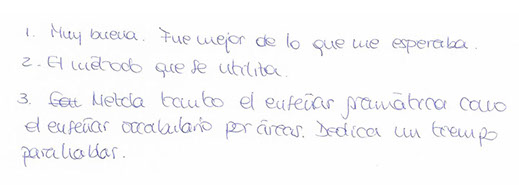 1. Muy buena. Fue mejor de lo que me esperaba.
2. El método que se utiliza.
3. Mezcla tanto el enseñar gramática como
el enseñar vocabulario por áreas. Dedica un tiempo
para hablar.